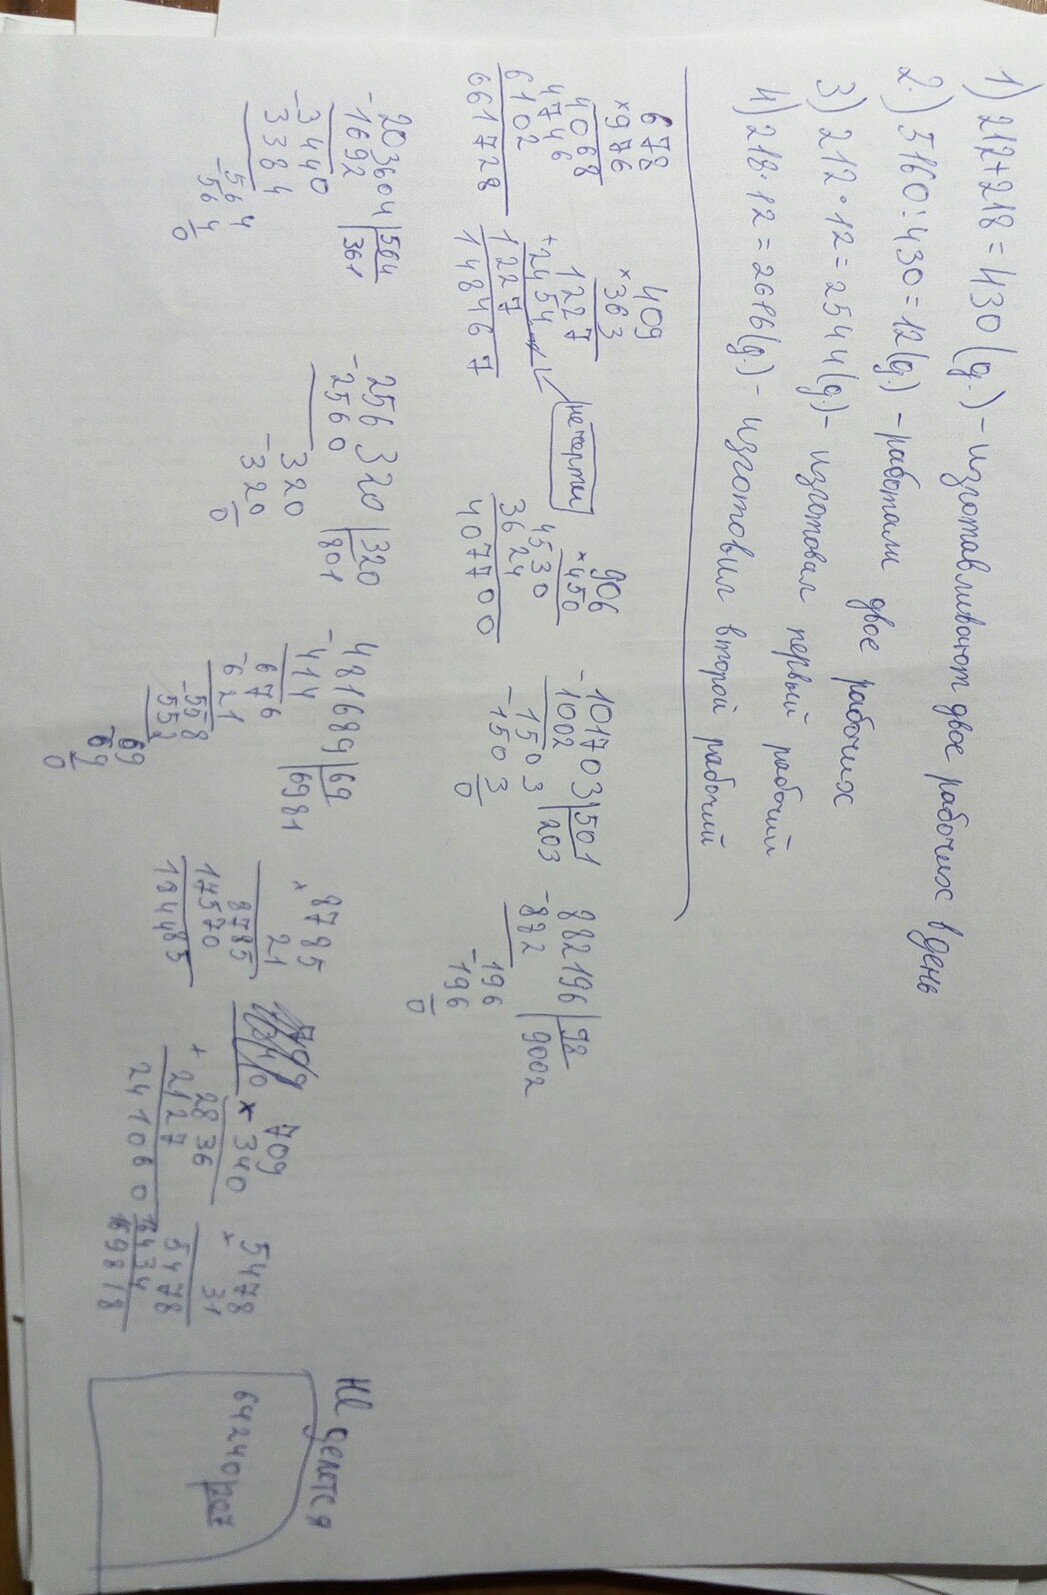 1) 212+218=430(g.)-изготавливают двое рабочих в день
2.) 5160:430=12(g.)-работали двое рабочих
3) 212·12=2544(g.)-изготовил первый рабочий
4) 218·12=2616(g.)-изготовил второй рабочий
678
×976
4068
4746
6102
661728
409
×363
1227
+2454
1227
148467
не черти
906
×450
4530
3624
407700
-101703|501
1002 |203
1503
-1503
0
882196|98
-882 |9002
196
-196
0
203604|564
-1692 |361
-3440
3384
-564
564
0
256320|320
-2560 |801
320
-320
0
481689|69
-414 |6981
676
-621
-558
552
69
-69
0
8785
× 21
8785
17570
184485
709
×340
2836
+2127
241060
5478
× 31
5478
16434
169818
Не делется
64240|207